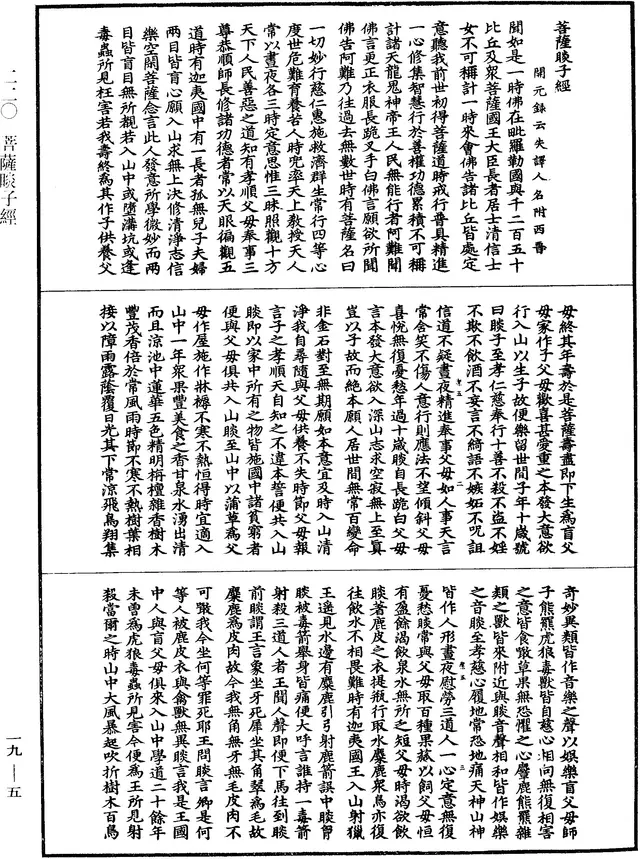 菩薩睒子經
開元錄云失譯人名附西晉
聞如是一時佛在毗羅勒國與千二百五十
比丘及衆菩薩國王大臣長者居士清信士
女不可稱計一時來會佛告諸比丘皆處定
意聽我前世初得菩薩道時戒行普具精進
一心修集智慧行於善權功德累積不可稱
計諸天龍鬼神帝王人民無能行者阿難聞
佛言更正衣服長跪叉手白佛言願欲所聞
佛告阿難乃往過去無數世時有菩薩名曰
一切妙行慈仁惠施救濟群生常行四等心
度世危難育養苦人時兜率天上教授天人
常以晝夜各三時定意思惟三昧照觀十方
天下人民善惡之道知有孝順父母奉事三
尊恭順師長修諸功德者常以天眼徧觀五
道時有迦夷國中有一長者孤無兒子夫婦
兩目皆盲心願入山求無上決修清淨志信
樂空閑菩薩念言此人發意所學微妙而兩
目皆盲目無所覩若入山中或墮溝坑或逢
毒蟲所見枉害若我壽終爲其作子供養父
母終其年壽於是菩薩壽盡即下生爲盲父
母家作子父母歡喜甚愛重之本發大意欲
行入山以生子故便樂留世間子年十歲號
曰睒子至孝仁慈奉行十善不殺不盜不婬
不欺不飲酒不妄言不綺語不嫉妬不呪詛
信道不疑晝夜精進奉事父母如人事天言
常含笑不傷人意行則應法不望傾斜父母
喜悅無復憂愁年過十歲睒自長跪白父母
言本發大意欲入深山志求空寂無上至真
豈以子故而絶本願人居世間無常百變命
非金石對至無期願如本意宜及時入山清
淨我自尋隨與父母供養不失時節父母報
言子之孝順天自知之不違本誓便共入山
睒即以家中所有之物皆施國中諸貧窮者
便與父母俱共入山睒至山中以蒲草爲父
母作屋施作牀褥不寒不熱恒得時宜適入
山中一年衆果豐美食之香甘泉水湧出清
而且涼池中蓮華五色精明栴檀雜香樹木
豐茂香倍於常風雨時節不寒不熱樹葉相
接以障雨露蔭覆日光其下常涼飛鳥翔集
奇妙異類皆作音樂之聲以娛樂盲父母師
子熊羆虎狼毒獸皆自慈心相向無復相害
之意皆食噉草果無恐懼之心麞鹿熊羆雜
類之獸皆來附近與睒音聲相和皆作娛樂
之音睒至孝慈心履地常恐地痛天神山神
皆作人形晝夜慰勞三道人一心定意無復
憂愁睒常與父母取百種果蓏以飼父母恒
有盈餘渴飲泉水無所之短父母時渴欲飲
睒著鹿皮之衣提瓶行取水麋鹿衆鳥亦復
往飲水不相畏難時有迦夷國王入山射獵
王遙見水邊有麋鹿引弓射鹿箭誤中睒胷
睒被毒箭舉身皆痛便大呼言誰持一毒箭
射殺三道人者王聞人聲即便下馬往到睒
前睒謂王言象坐牙死犀坐其角翠爲毛故
麋鹿爲皮肉故今我無角無牙無毛皮肉不
可噉我今坐何等罪死耶王問睒言卿是何
等人被鹿皮衣與禽獸無異睒言我是王國
中人與盲父母俱來入山中學道二十餘年
未曾爲虎狼毒蟲所見害今便爲王所見射
殺當爾之時山中大風暴起吹折樹木百鳥
二二〇 菩薩睒子經
一九—五